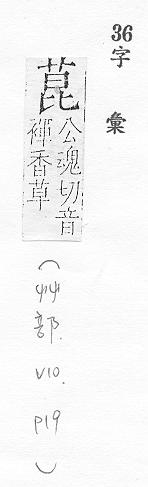 36
字彙
菎
公魂切音
褌香草
(艸部. V10. P19)